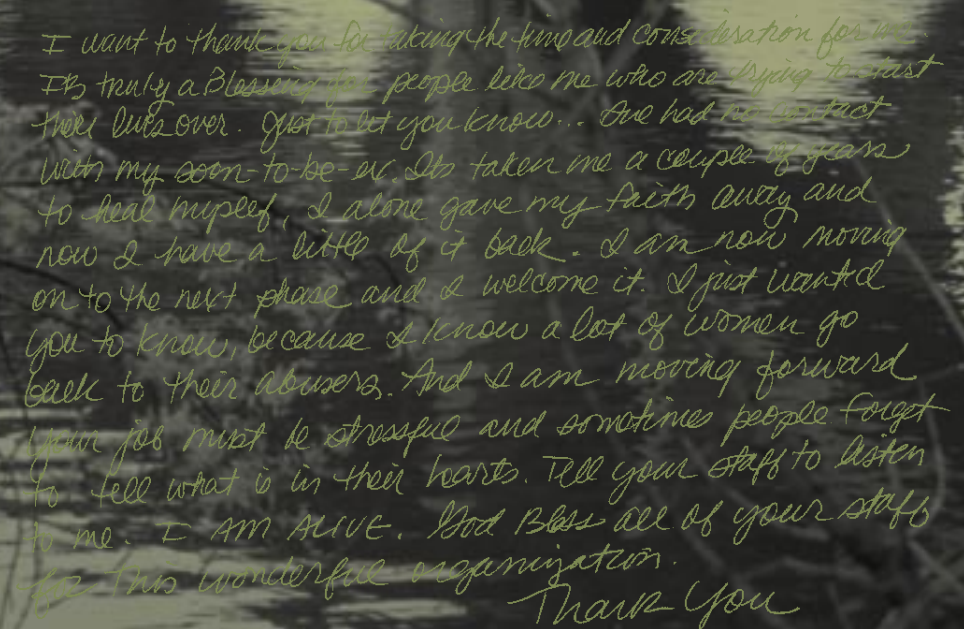 I want to thank you for taking the time and consideration for me.
It's truly a Blessing for people like me who are trying to start
their lives over. Just to let you know... I've had no contact
with my soon-to-be-ex. Its taken me a couple of years
to heal myself, I alone gave my faith away and
now I have a little of it back. I am now moving
on to the next phase and I welcome it. I just wanted
you to know, because I know a lot of women go
back to their abusers. And I am moving forward
your job must be stressful and sometimes people forget
to tell what is in their hearts. Tell your staff to listen
to me. I AM ALIVE. God Bless all of your staff
for this wonderful organization.
Thank You